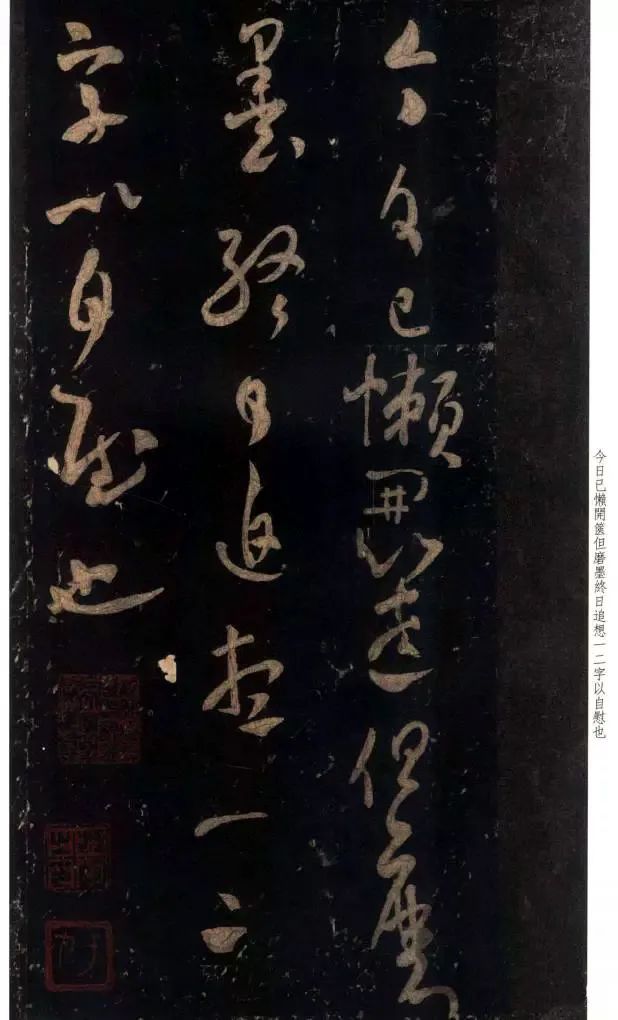 今日已懶開篋但磨
墨終日追想一二
字以自慰也
今日已懶開篋但磨墨終日追想一二字以自慰也